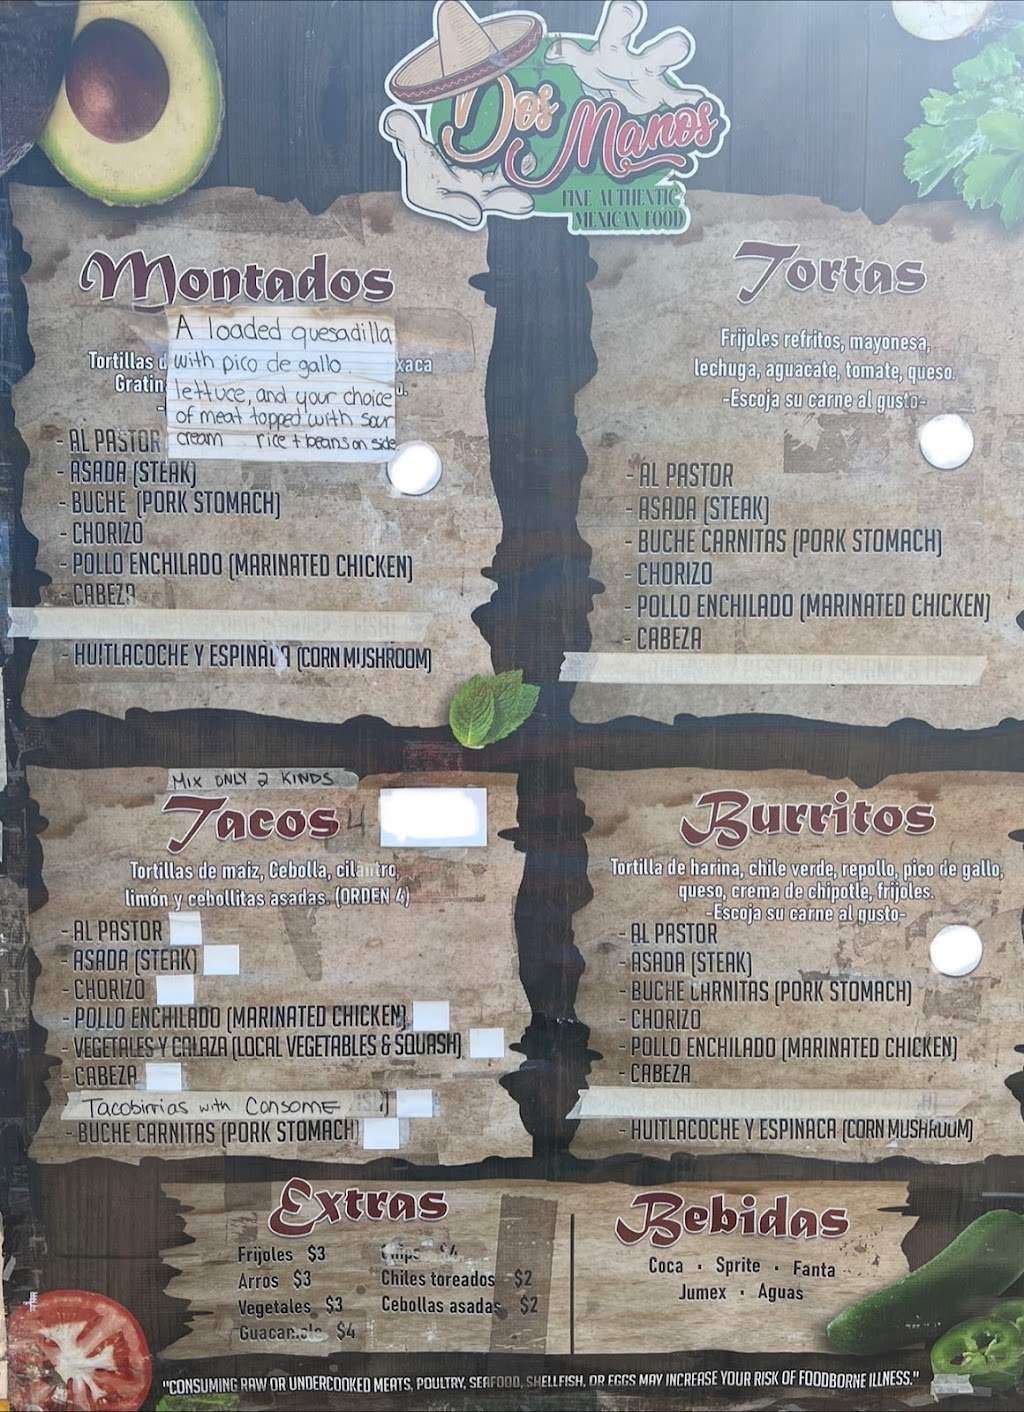 Dos Manos
FINE AUTHENTIC
MEXICAN FOOD
Montados
A loaded quesadilla
with pico de gallo.
lettuce, and your choice
of meat topped with sour
cream rice + beans on side
Tortillas
- AL PASTOR
- ASADA (STEAK)
- BUCHE (PORK STOMACH)
- CHORIZO
- POLLO ENCHILADO (MARINATED CHICKEN)
- CABEZA
- HUITLACOCHE Y ESPINACA (CORN MUSHROOM)
Tortas
Frijoles refritos, mayonesa,
lechuga, aguacate, tomate, queso.
-Escoja su carne al gusto-
- AL PASTOR
- ASADA (STEAK)
- BUCHE CARNITAS (PORK STOMACH)
- CHORIZO
- POLLO ENCHILADO (MARINATED CHICKEN)
- CABEZA
MIX ONLY 2 KINDS
Tacos 4
Tortillas de maiz, Cebolla, cilantro,
limón y cebollitas asadas. (ORDEN 4)
- AL PASTOR
- ASADA (STEAK)
- CHORIZO
- POLLO ENCHILADO (MARINATED CHICKEN)
- VEGETALES Y CALAZA (LOCAL VEGETABLES & SQUASH)
- CABEZA
Tacobirrias with CONSOME
- BUCHE CARNITAS (PORK STOMACH)
Burritos
Tortilla de harina, chile verde, repollo, pico de gallo,
queso, crema de chipotle, frijoles.
-Escoja su carne al gusto-
- AL PASTOR
- ASADA (STEAK)
- BUCHE CARNITAS (PORK STOMACH)
- CHORIZO
- POLLO ENCHILADO (MARINATED CHICKEN)
- CABEZA
- HUITLACOCHE Y ESPINACA (CORN MUSHROOM)
Extras
Frijoles $3
Arros $3
Vegetales $3
Guacamole $4
Chips $4
Chiles toreados - $2
Cebollas asadas $2
Bebidas
Coca · Sprite · Fanta
Jumex · Aguas
"CONSUMING RAW OR UNDERCOOKED MEATS, POULTRY, SEAFOOD, SHELLFISH, OR EGGS MAY INCREASE YOUR RISK OF FOODBORNE ILLNESS."